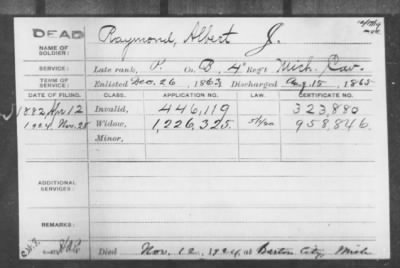 DEAD
NAME OF SOLDIER: Raymond, Albert J.
SERVICE: Late rank, P. Co. B, 4" Reg't Mich. Cav.
TERM OF SERVICE: Enlisted Dec. 26, 1863 Discharged Aug. 15, 1865
DATE OF FILING. CLASS. APPLICATION NO. LAW. CERTIFICATE NO.
1882, Apr 12 Invalid, 446,119 323,880
1924 Nov. 28 Widow, 1,226,325 958,846
Minor,
ADDITIONAL SERVICES:
REMARKS:
Died Nov. 12, 1924, at Barton City, Mich